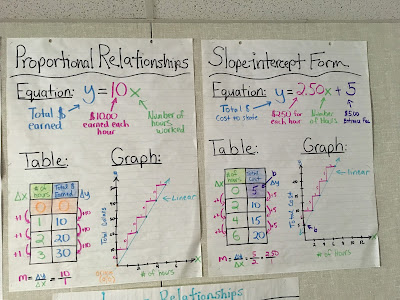 Proportional Relationships
Equation: y = 10x
Total $
earned
$10.00
earned each
hour
Number of
hours
worked
Table:
Graph:
Δx
# of
hours
Total $
Earned
Δy
0 0
1 10
2 20
3 30
+1
+1
+1
+10
+10
+10
Linear
Total
# of hours
x
m = Δy/Δx = 10/1
Slope-intercept Form
Equation: y = 2.50x + 5
Total $
Cost to skate
$2.50 for
each hour
Number
of hours
$5.00
Entrance Fee
Table:
Graph:
Δx
# of
hours
Total
Cost
b
Δy
0 5
2 10
4 15
6 20
+5
+5
+5
Linear
Total Cost
b
# of hours
x
m = Δy/Δx = 5/2 = 2.50
Relationships